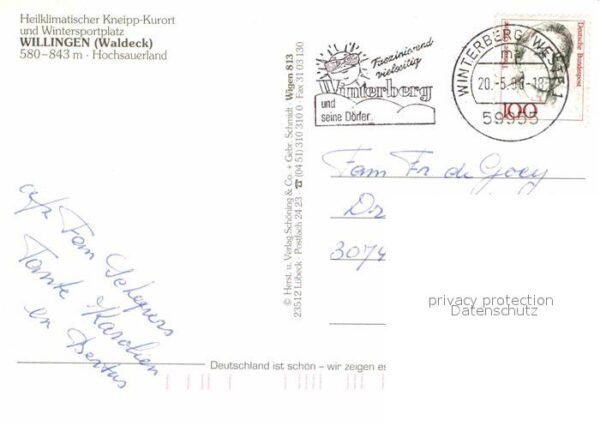 Heilklimatischer Kneipp-Kurort
und Wintersportplatz
WILLINGEN (Waldeck)
580–843 m · Hochsauerland
Faszinierend
vielseitig
Winterberg
und
seine Dörfer
WINTERBERG, WESTF 1
20.-5.96-18
59955
Deutsche Bundespost
100
© Herst. u. Verlag Schöning & Co. + Gebr. Schmidt Wigen 813
23512 Lübeck · Postfach 24 23 ☎ (04 51) 310 310 0 · Fax 31 03 130
Fam Fr de Goey
Dr
3074
afz Fam Schepers
Tante Karolien
en Bertus
privacy protection
Datenschutz
Deutschland ist schön – wir zeigen es